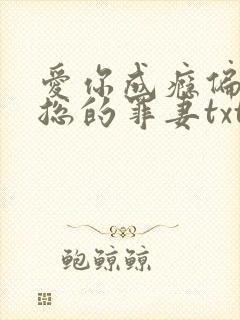 爱你成瘾偏
总的罪妻txt
鲍鲸鲸